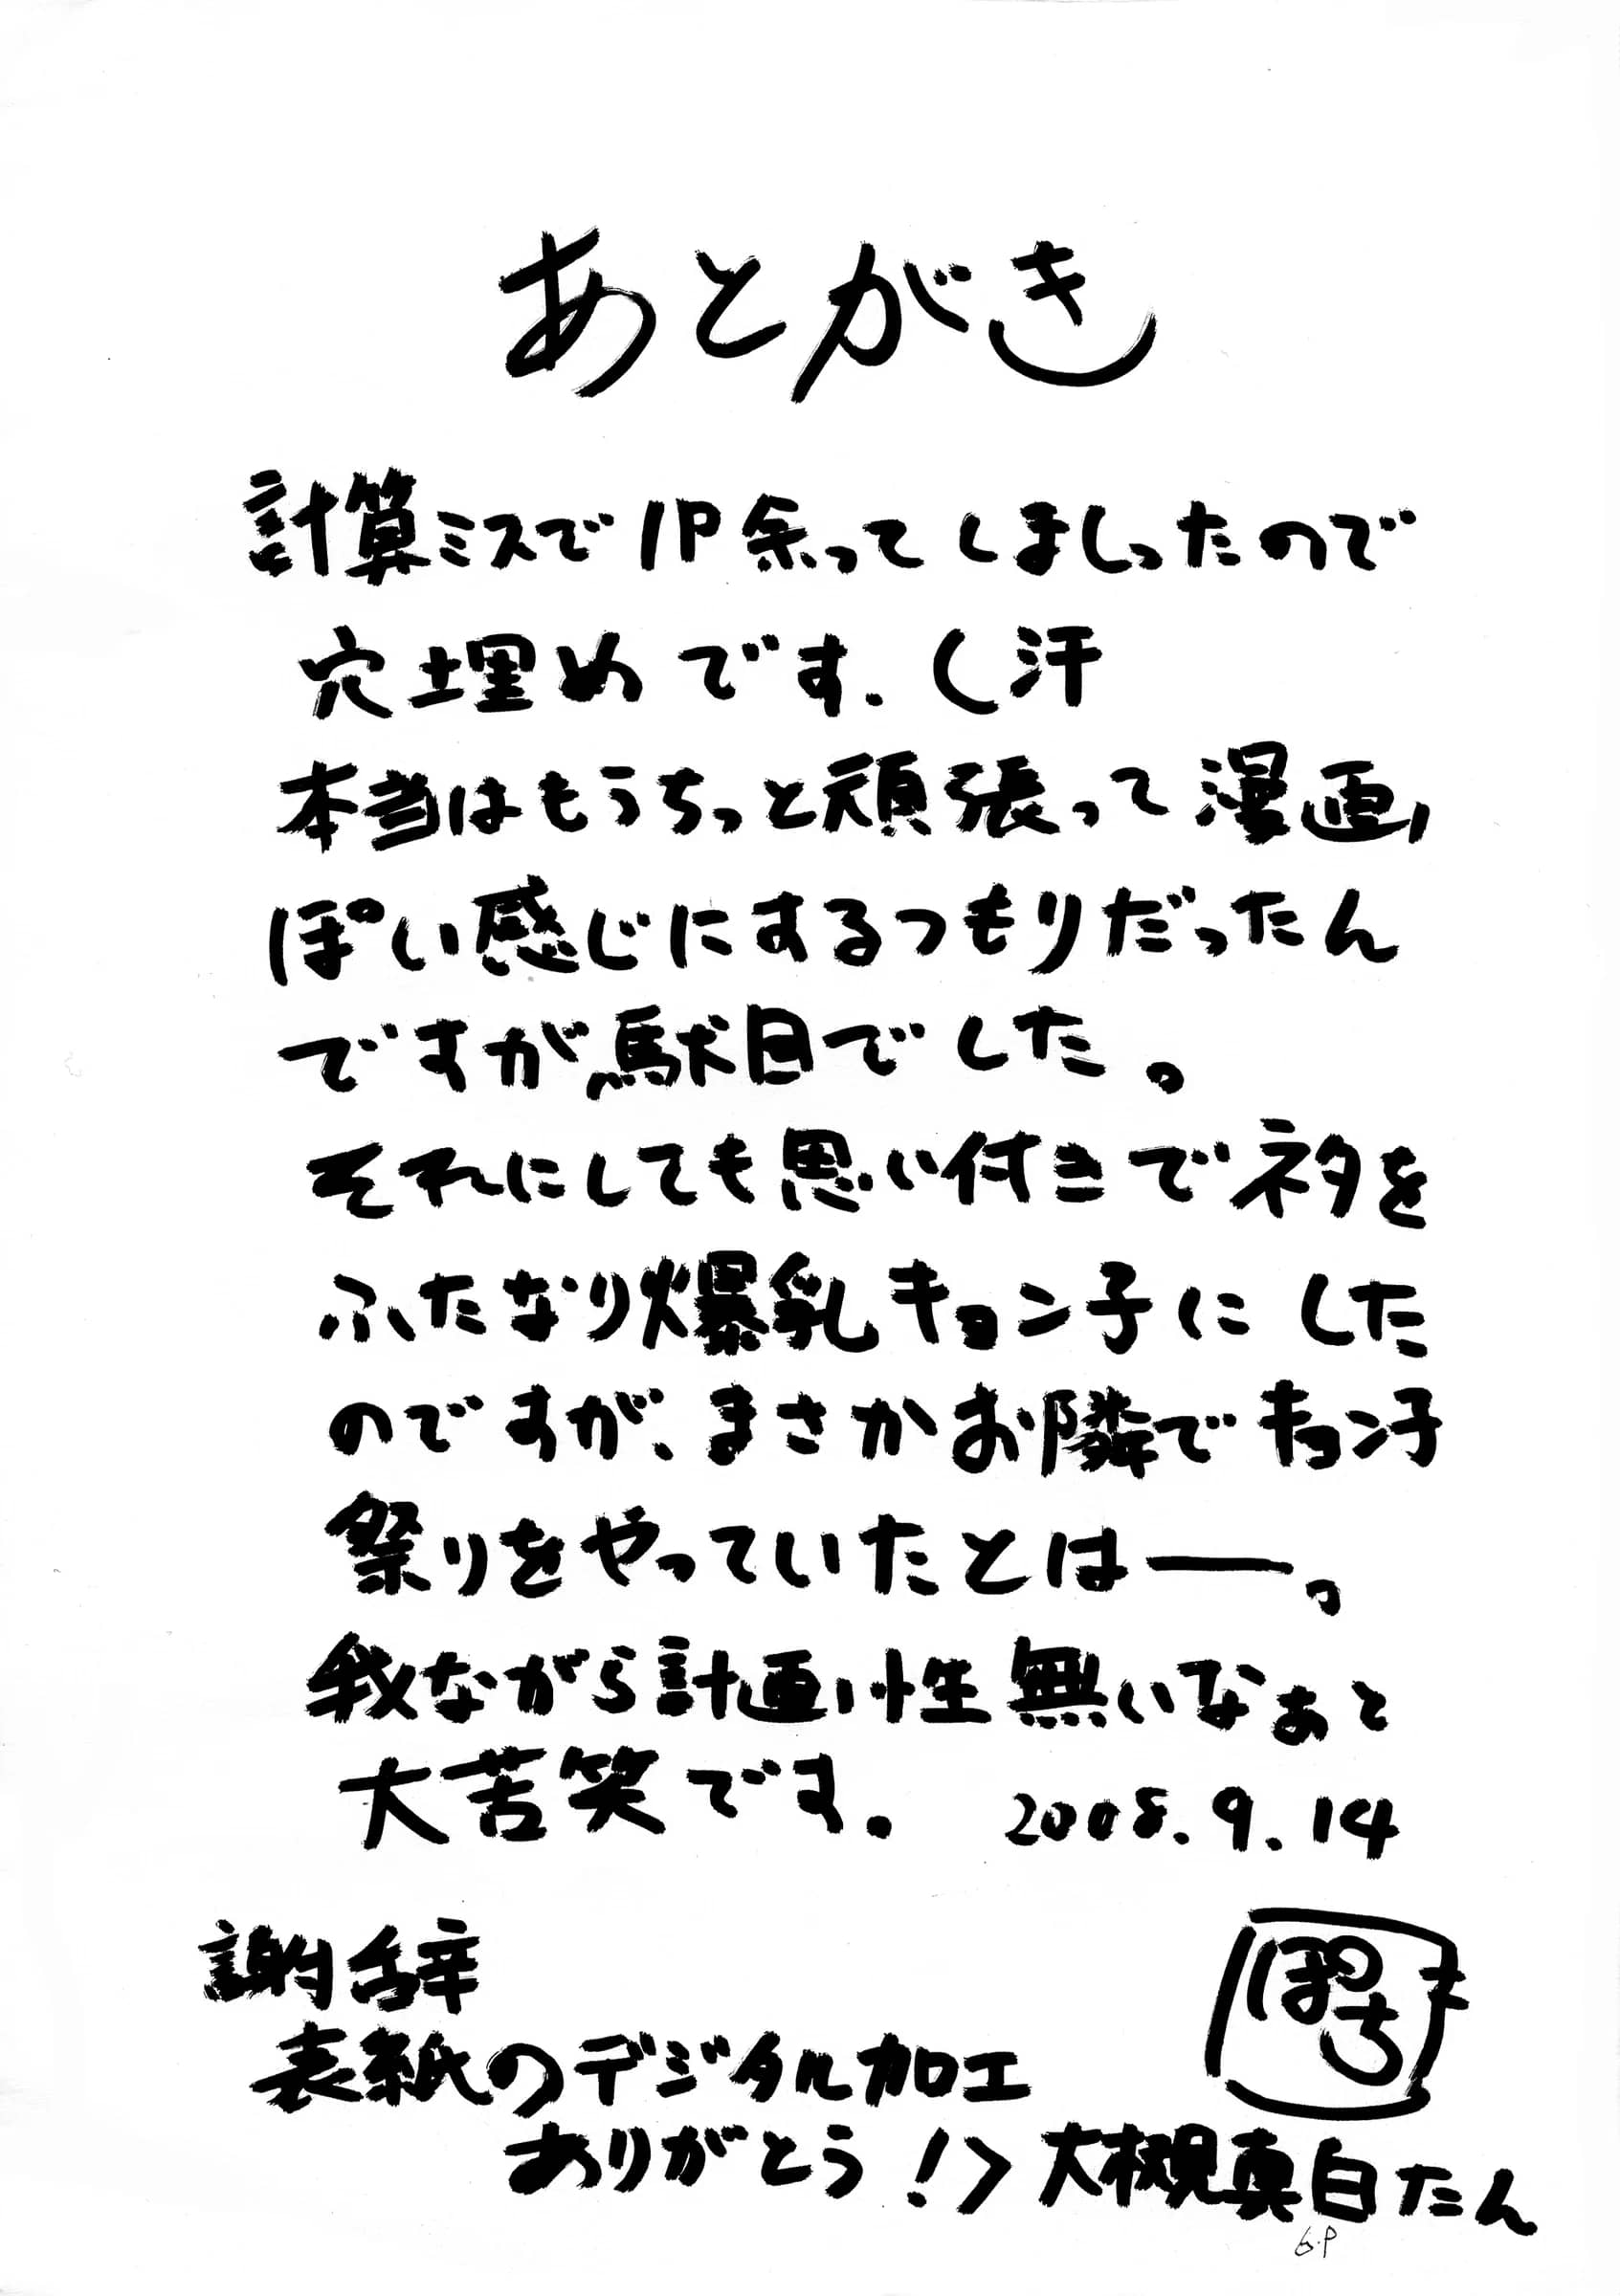 あとがき
計算ミスで1P余ってしましったので
穴埋めです.(汗
本当はもうちっと頑張って漫画
ぽい感じにするつもりだったん
ですが駄目でした。
それにしても思い付きでネタを
ふたなり爆乳キョン子にした
のですが、まさかお隣でキョン子
祭りをやっていたとはー。
我ながら計画性無いなぁと
大苦笑です。 2008.9.14
ぽち
謝辞
表紙のデジタル加工
ありがとう!>大槻真白たん
6.P